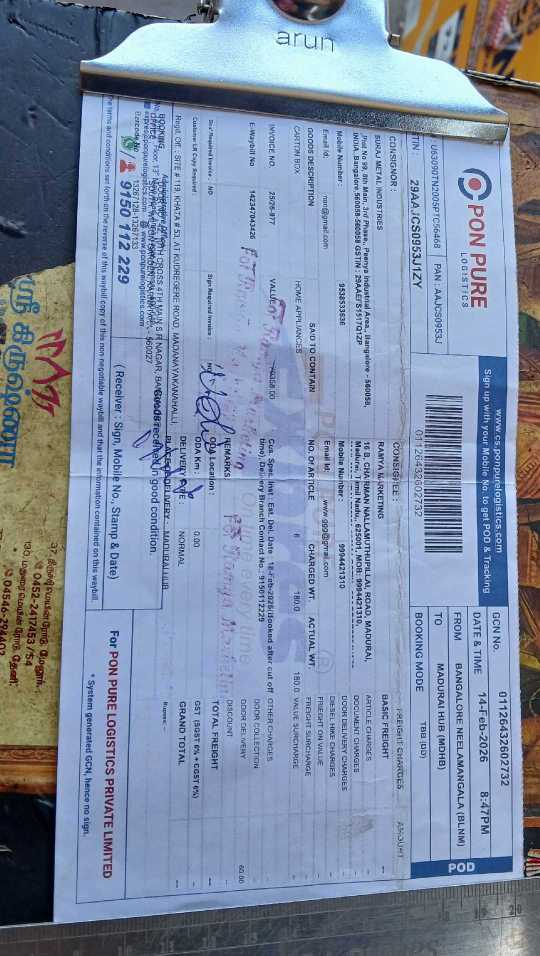 arun
PON PURE
LOGISTICS
U63090TN2005PTC56468 PAN : AAJCS0953J
29AAJCS0953J1ZY
www.cs.ponpurelogistics.com
Sign up with your Mobile No. to get POD & Tracking
01126432602732
GCN No. 01126432602732
DATE & TIME 14-Feb-2026 8:47PM
FROM BANGALORE NEELAMANGALA (BLNM)
TO MADURAI HUB (MDHB)
BOOKING MODE TBB (DD)
POD
CONSIGNOR :
SURAJ METAL INDUSTRIES
Plot No 99, 8th Main, 3rd Phase, Peenya Industrial Area, Bangalore - 560058,
INDIA, Bangalore,560058-560058 GSTIN : 29AAEFS1517Q1ZP
Mobile Number : 9538533506
Email Id. non@gmail.com
CONSIGNEE :
RAMYA MARKETING
16 B, CHAIRMAN NALLAMUTHUPILLAI, ROAD, MADURAI,
Madurai, Tamil Nadu,, 625001, MOB: 9994421310,
Mobile Number : 9994421310
Email Id. www.ggg@gmail.com
GOODS DESCRIPTION SAID TO CONTAIN NO. OF ARTICLE CHARGED WT. ACTUAL WT.
CARTON BOX HOME APPLIANCES 6 180.0 180.0
INVOICE NO. 25/26-977 VALUE
E-Waybill No 142347043426
Cus. Spes. Inst : Est. Del. Date : 18-Feb-2026(Booked after cut off
time) Delivery Branch Contact No : 9150112229
REMARKS
FREIGHT CHARGES AMOUNT
BASIC FREIGHT
ARTICLE CHARGES
DOCUMENT CHARGES
DOOR DELIVERY CHARGES
DIESEL HIKE CHARGES
FREIGHT ON VALUE
FREIGHT SURCHARGE
VALUE SURCHARGE
OTHER CHARGES
DOOR COLLECTION
DOOR DELIVERY 60.00
DISCOUNT
TOTAL FREIGHT
GST (SGST 6% + CGST 6%)
GRAND TOTAL
Rupees :-
Customer LR Copy Required
ODA Location :
ODA Km : 0.00
DELIVERY TYPE NORMAL
PLACE OF DELIVERY : MADURAI HUB
Regd. Off. : SITE # 119, KHATA # 53, AT KUDREGERE ROAD, MADANAYAKANAHALLI,
Goods received in good condition.
(Receiver : Sign, Mobile No., Stamp & Date)
9150 112 229
www.ponpurelogistics.com
For Ramya Marketing
For PON PURE LOGISTICS PRIVATE LIMITED
* System generated GCN, hence no sign.
the terms and conditions set forth on the reverse of this waybill copy of this non negotiable waybill and that the information contained on this waybill.
ஸ்ரீ கிருஷ்ணா
0452-2417453 / 54
19 20